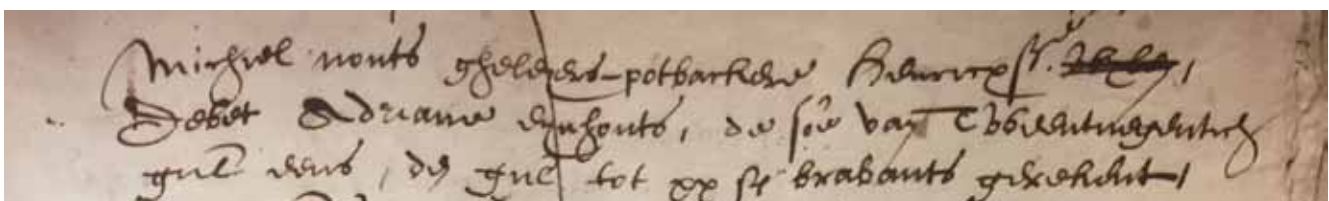 Michiel nouts gheleyers potbackere Henricx sr.
Debet Adriane eynhouts, de soe van Tweentnegentich
gul eens, de gul tot xx st brabants gerekent,